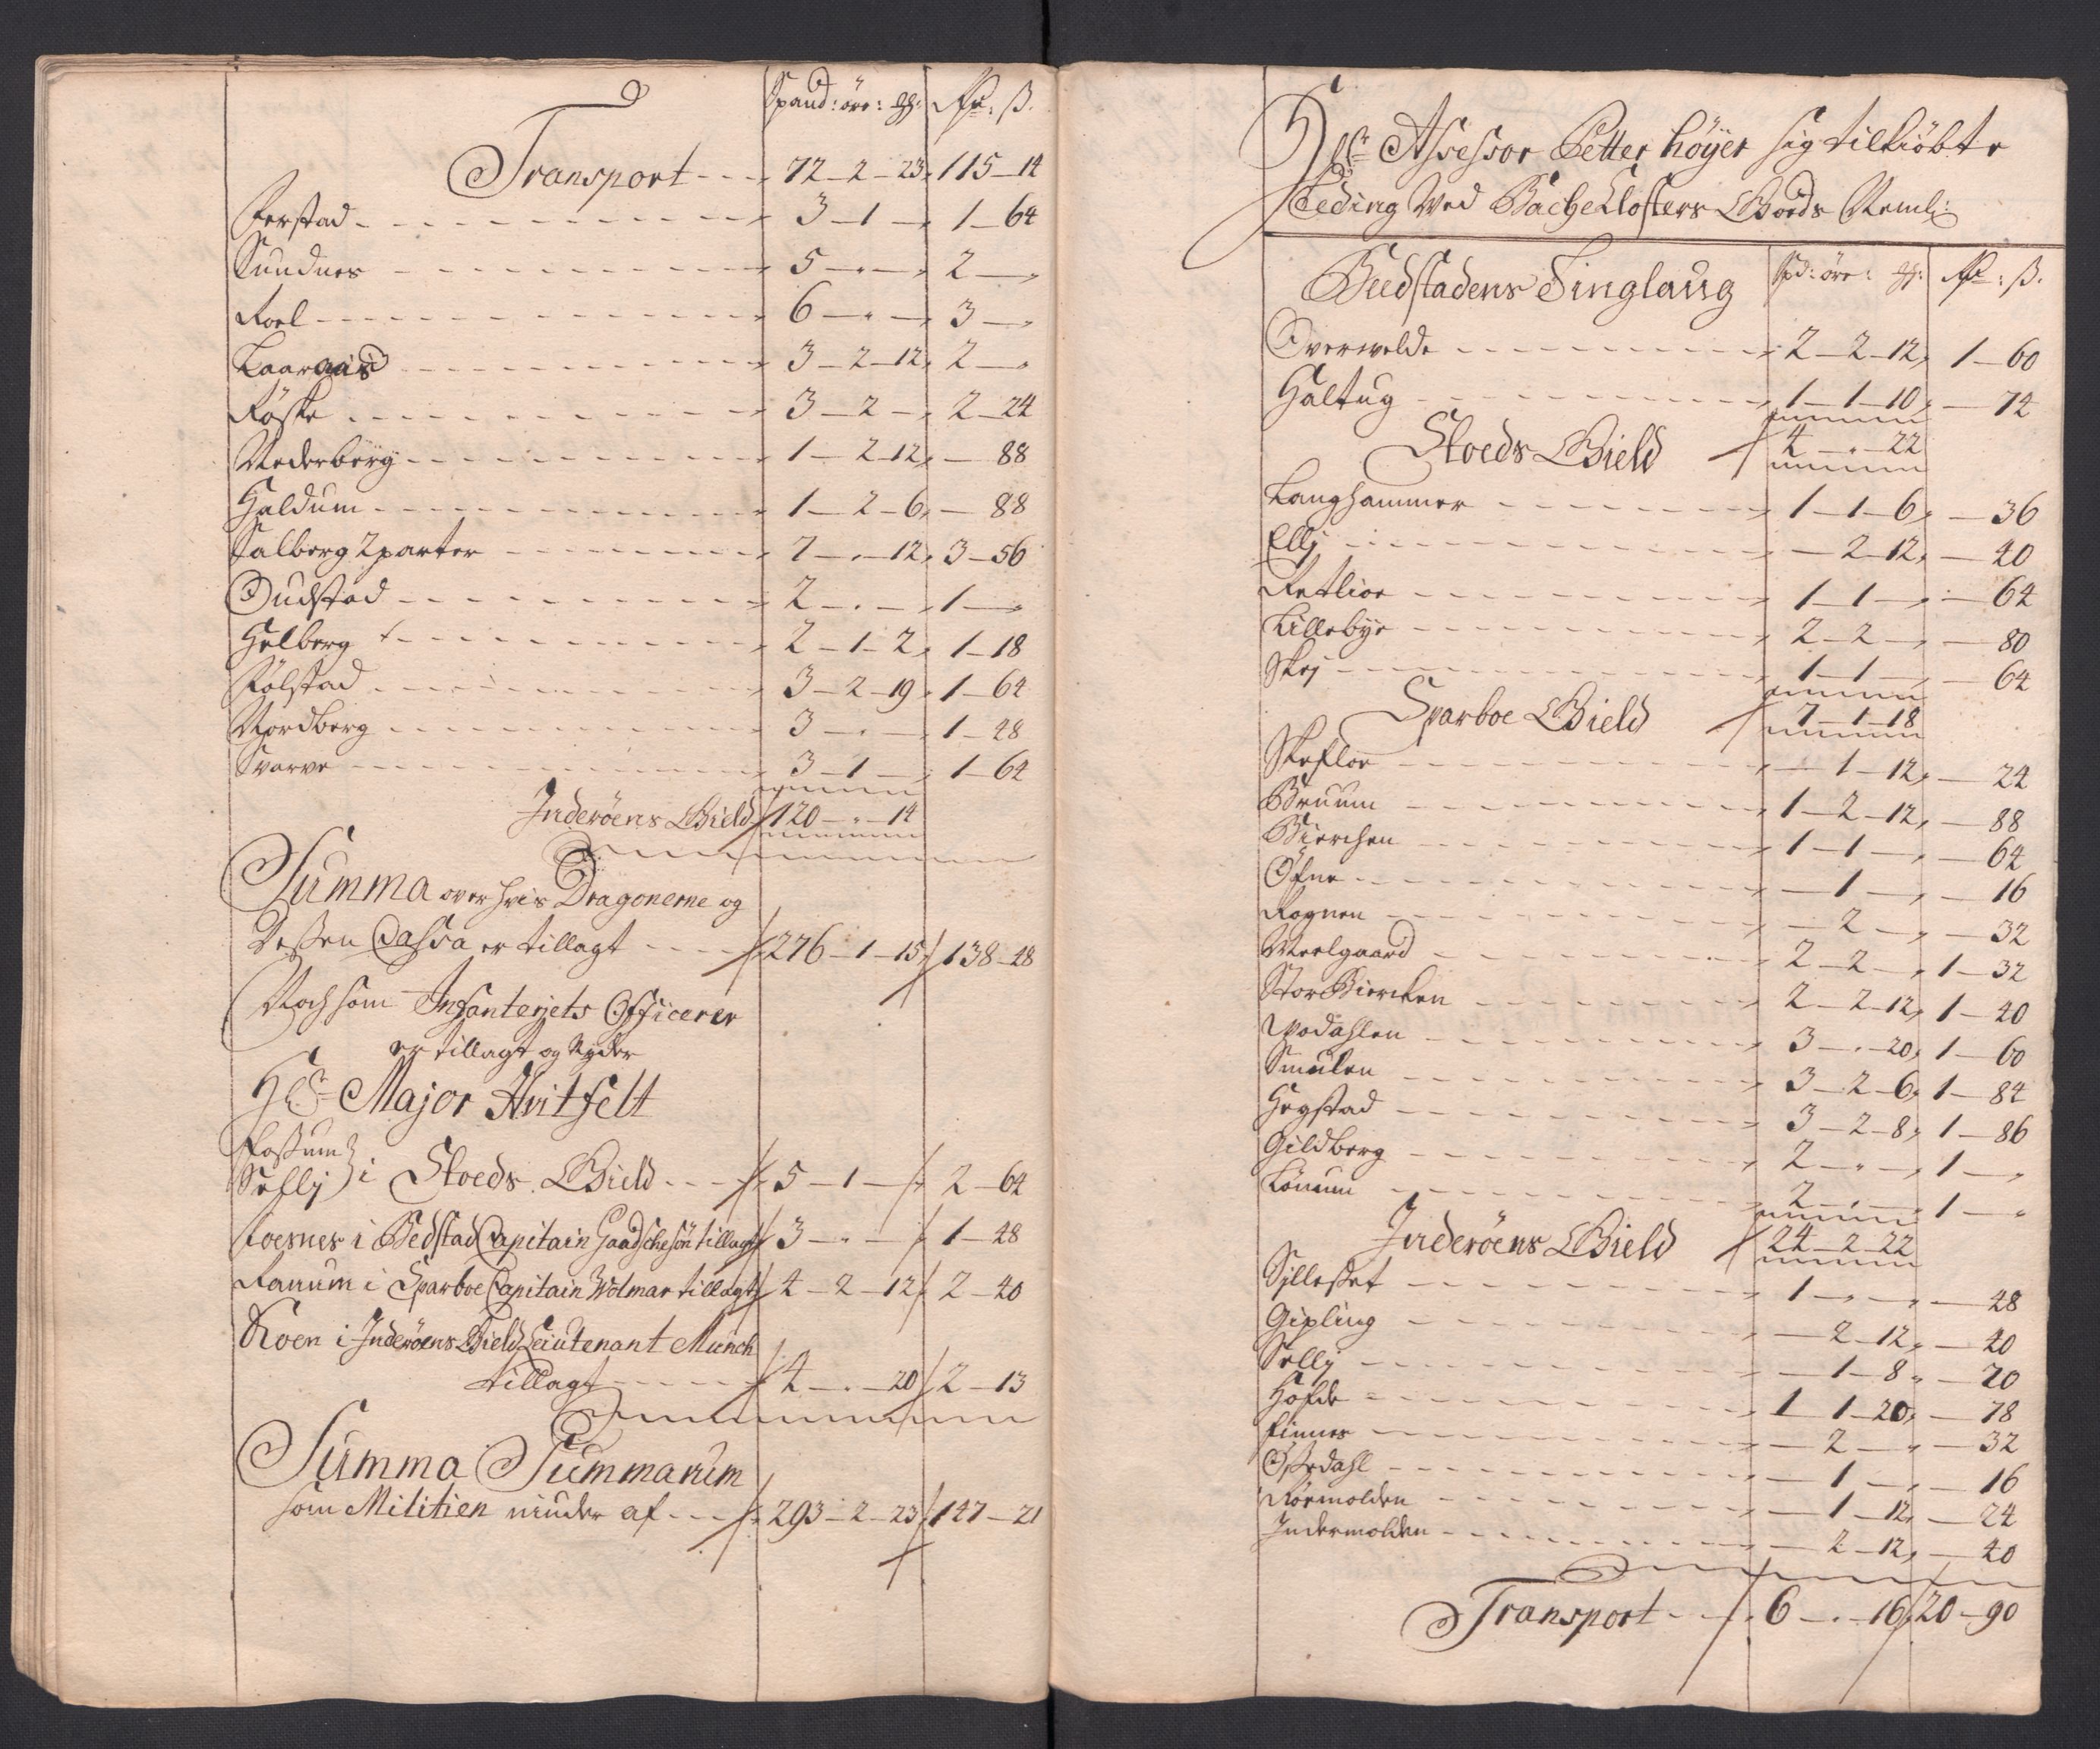 Spand: öre: Rdr: ß.
Transport 72 - 2 - 23, 115 - 14
Ferstad 3 - 1 - , 1 - 64
Sundnes 5 - „ - , 2 - „
Roel 6 - „ - , 3 - „
Laaraais 3 - 2 - 12, 2 - „
Røske 3 - 2 - , 2 - 24
Nederbÿrg 1 - 2 - 12, - 88
Haldum 1 - 2 - 6, - 88
Salberg 2 parter 7 - „ - 12, 3 - 56
Oudstad 2 - „ - 1 - „
Helberg 2 - 1 - 2, 1 - 18
Rölstad 3 - 2 - 19, 1 - 64
Nordberg 3 - „ - 1 - 48
Svarve 3 - 1 - , 1 - 64
Inderöens Gield 120 - „ - 14
Summa over hvis Dragonerne og
Dessen Cassa er tillagt 276 - 1 - 15, 138 - 48
Noch som Infanterjets Officerer
er tillagt og Nyder
Hr Major Hvitfelt
Fossum
Selli i Stoeds Gield 5 - 1 - 2 - 64
Foesnes i Bedstad Capitain Gaadschesön tillagt 3 - „ - 1 - 48
Ranum i Sparboe Capitain Wolmar tillagt 4 - 2 - 12 2 - 40
Roen i Inderöens Gield Leiutenant Munch
tillagt 4 - „ - 20 2 - 13
Summa Summarum
som Militien niuder af 293 - 2 - 23 147 - 21
Hr Assessor Petter höÿer sig tilkiöbte
Teding Ved Bache Closters Goeds Neml:
Beedstadens Tinglaug Spd: öre: Rdr: ß.
Overvelde 2 - 2 - 12, 1 - 60
Haltug 1 - 1 - 10, - 74
Stoeds Gield 4 - „ - 22
Langhammer 1 - 1 - 6, - 36
Elli - 2 - 12, - 40
Retlioe 1 - 1 - , - 64
Lillebÿe 2 - 2 - , - 80
Skej 1 - 1 - , - 64
Sparboe Gield 7 - 1 - 18
Skefloe - 1 - 12, - 24
Bruum 1 - 2 - 12, - 88
Bierchen 1 - 1 - , - 64
Öfne - 1 - , - 16
Rognen - 2 - , - 32
Meelgaard 2 - 2 - , 1 - 32
Stor Bierchen 2 - 2 - 12, 1 - 40
Wodahlen 3 - „ - 20, 1 - 60
Smulen 3 - 2 - 6, 1 - 84
Hegstad 3 - 2 - 8, 1 - 86
Gildberg 2 - „ - , 1 - „
Lönum 2 - „ - 1 - „
Inderöens Gield 24 - 2 - 22
Sillesset 1 - „ - „ - 48
Gipling - 2 - 12, - 40
Selli - 1 - 8 „ - 20
Hofde 1 1 - 20, - 78
Finnes - 2 - „ - 32
Osedahl - 1 - , - 16
Röemolden - 1 - 12, - 24
Indermolden - 2 - 12, - 40
Transport 6 - „ - 16, 20 - 90